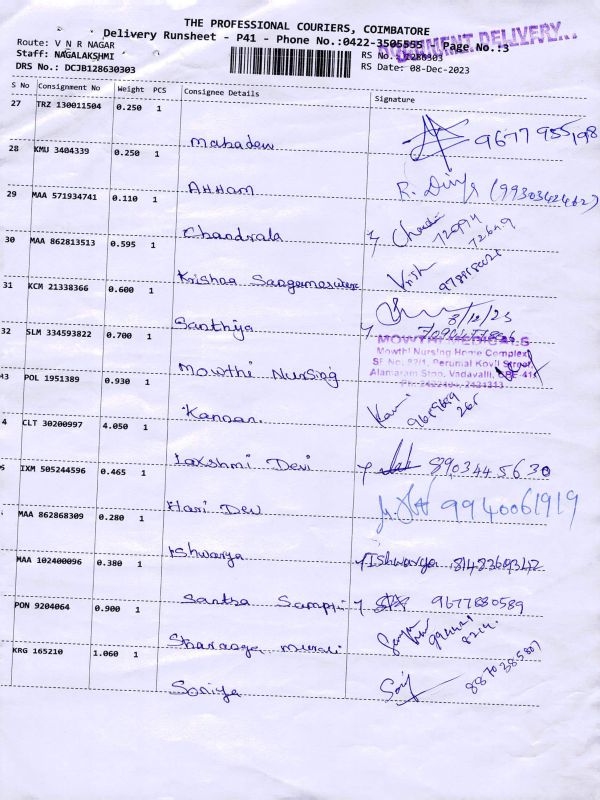 THE PROFESSIONAL COURIERS, COIMBATORE
Delivery Runsheet - P41 - Phone No.:0422-3505555 Page No.:3
DOCUMENT DELIVERY
Route: V N R NAGAR
Staff: NAGALAKSHMI
RS No.: 1286303
DRS No.: DCJB128630303
RS Date: 08-Dec-2023
S No Consignment No Weight PCS Consignee Details Signature
27 TRZ 130011504 0.250 1
Mahadev 9677955198
28 KMU 3404339 0.250 1
AHHAM R. Divya (9930342462)
29 MAA 571934741 0.110 1
Chandrala
30 MAA 862813513 0.595 1
Krishna
31 KCM 21338366 0.600 1
Santhiya 8/12/23
32 SLM 334593822 0.700 1
MOWTHI MEDICALS
Mowthi Nursing Home Complex
SF No. 82/1, Perumal Kovil Street
Alamaram Stop, Vadavalli, CBE-41
Mowthi Nursing
POL 1951389 0.930 1
Kannan
CLT 30200997 4.050 1
Laxshmi Devi 8903445630
IXM 505244596 0.465 1
Hari Dev 9940061919
MAA 862868309 0.280 1
Ishwarya Ishwarya 8142369342
MAA 102400096 0.380 1
Santha 9677880589
PON 9204064 0.900 1
Murali
KRG 165210 1.060 1
Soniya 8870385807